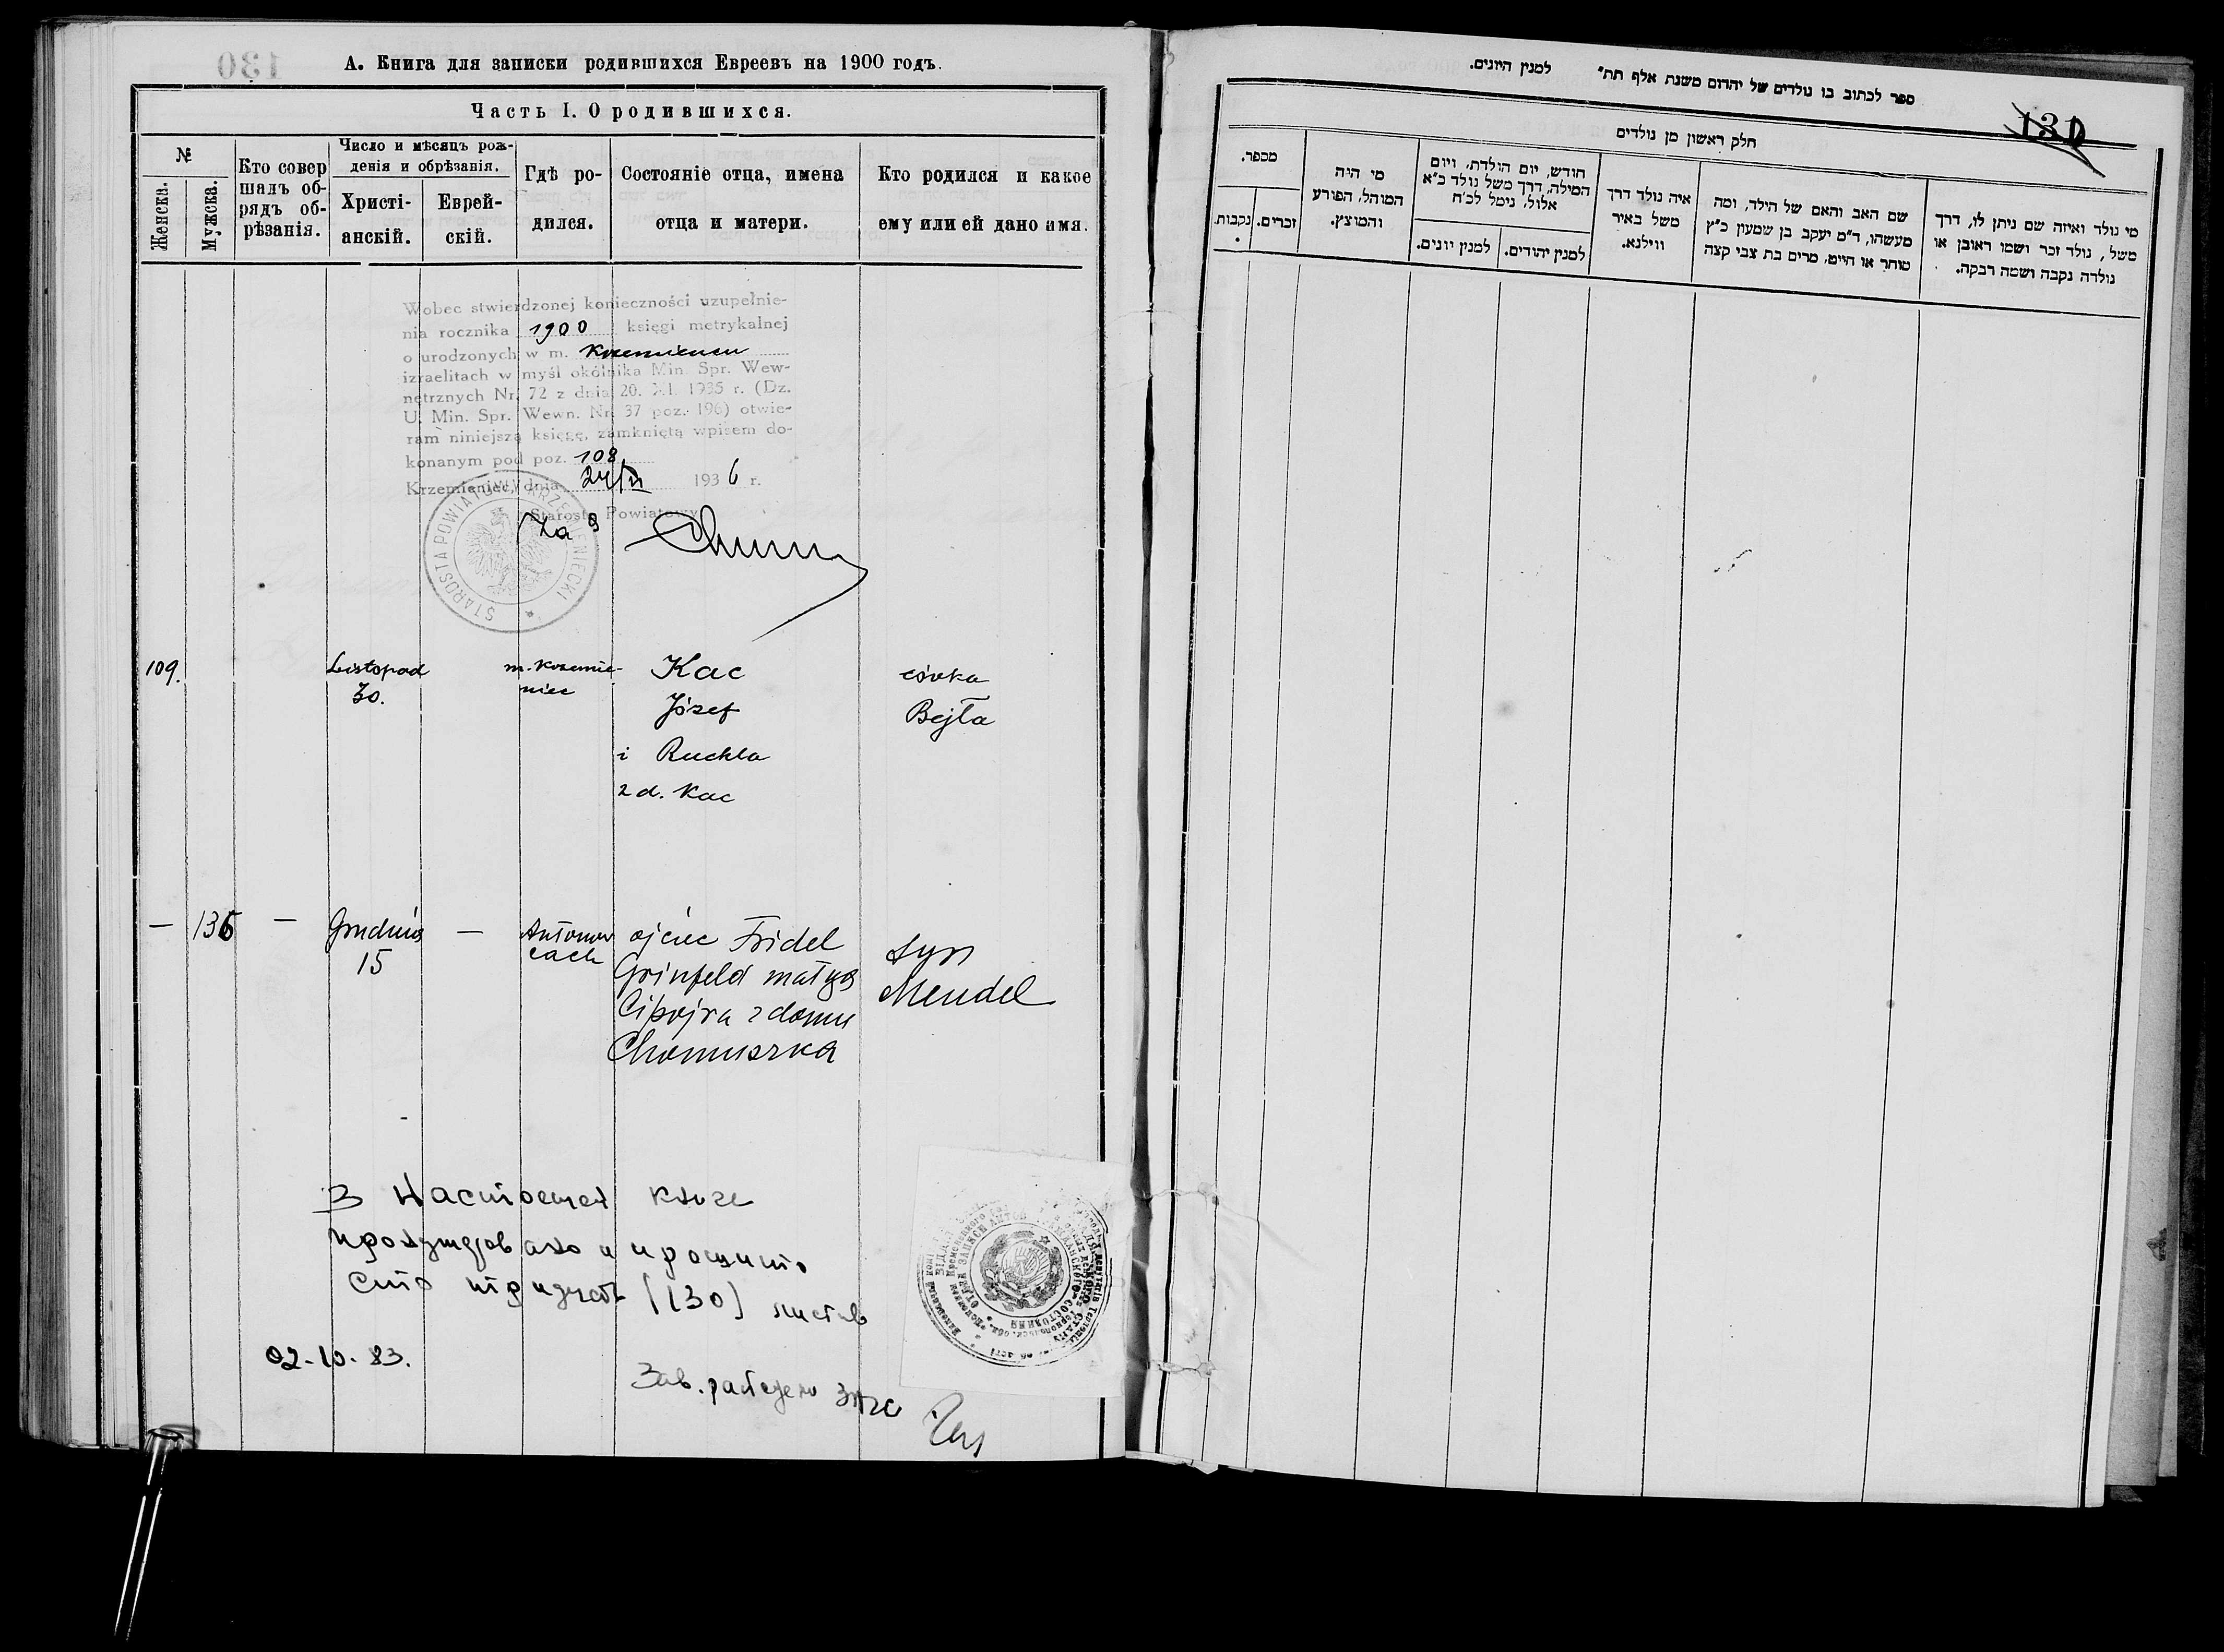 130
А. Книга для записки родившихся Евреевъ на 1900 годъ.
Часть I. О родившихся.
№
Женска.
Мужска.
Кто совер
шалъ об-
рядъ об-
рѣзанія.
Число и мѣсяцъ рож-
денія и обрѣзанія.
Христі-
анскій.
Еврей-
скій.
Гдѣ ро-
дился.
Состояніе отца, имена
отца и матери.
Кто родился и какое
ему или ей дано имя.
Wobec stwierdzonej konieczności uzupełnie-
nia rocznika 1900 księgi metrykalnej
o urodzonych w m. Krzemieńcu
izraelitach w myśl okólnika Min. Spr. Wew-
nętrznych Nr. 72 z dnia 20. XI. 1935 r. (Dz.
U. Min. Spr. Wewn. Nr. 37 poz. 196) otwie-
ram niniejszą księgę, zamkniętą wpisem do-
konanym pod poz. 108
Krzemieniec, dnia 24/ 1936 r.
Starosta Powiatowy
za
STAROSTA POWIATOWY KRZEMIENIECKI
109.
Listopad
30.
m. Krzemie-
niec
Kac
Józef
i Ruchla
z d. Kac
córka
Bejła
— 136 —
Grudnia
15
—
Antonow
cach
ojciec Fridel
Grinfeld matka
Cipojra z domu
Chomuszka
syn
Mendel
В настоящей книге
пронумеровано и прошито
сто тридцать (130) листов
02-10-83.
Зав.
ЗАГС
ספר לכתוב בו נולדים של יהדום משנת אלף תת״ למנין היונים.
131
חלק ראשון מן נולדים
מספר.
נקבות.
זכרים.
מי היה
המוהל, הפורע
והמוצץ.
חודש, יום הולדת, ויום
המילה, דרך משל נולד כ״א
אלול, נימל לכ״ח
למנין יונים.
למנין יהודים.
איה נולד דרך
משל באיר
ווילנא.
שם האב והאם של הילד, ומה
מעשהו, ד״מ יעקב בן שמעון כ״ץ
סוחר או חייט, מרים בת צבי קצה
מי נולד ואיזה שם ניתן לו, דרך
משל, נולד זכר ושמו ראובן או
נולדה נקבה ושמה רבקה.